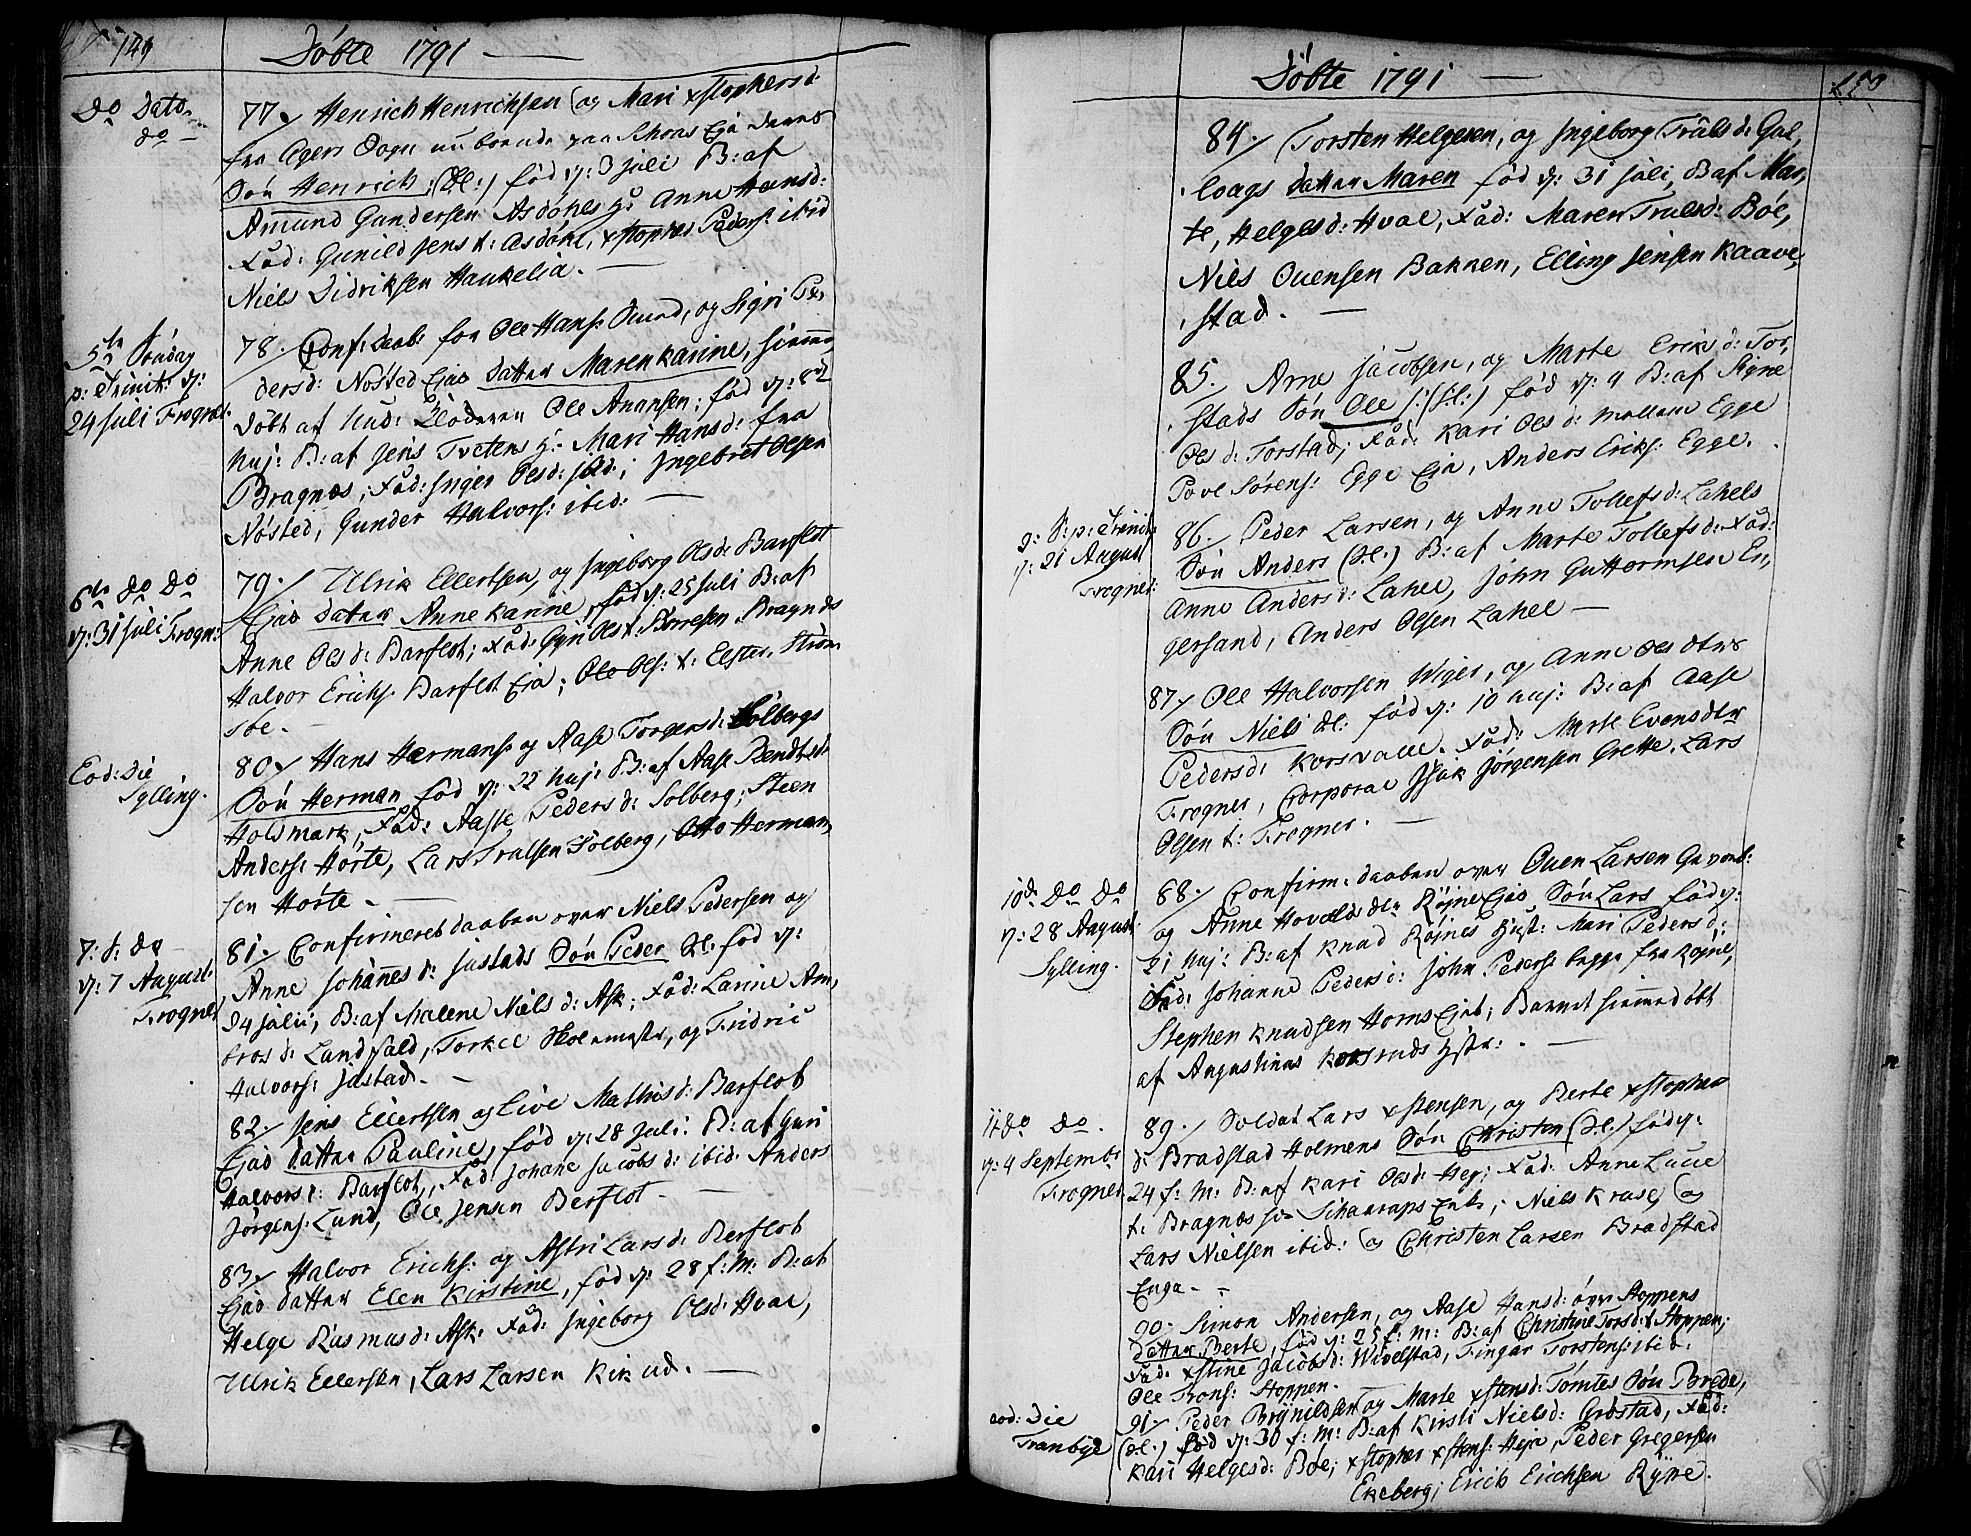 149
Döbte 1791 —
Do Dato
do —
77 / Henrich Henrichsen og Mari xstophersd:
fra Agers Sogn nu boende paa Schoes Eje deres
Sön Henrich, (Dl:) fød d: 3 Juli B: af
Amund Gundersen Asdöhls H: Anne Hansd:
Fad: Gunild Jens d: Asdöhl, xstopher Peders: ibid
Niels Didriksen Haukelia. —
5te Söndag
p: Trinit: d:
24 Juli Frogner.
78 / Conf: daab: for Ole Hans: Svend, og Sigri Pe-
dersd: Nösted Ejes datter Maren Karine, hiemme-
döbt af Ole Anansen; fød d: 8d
huj: B: af Jens Tvetens H: Mari Hansd: fra
Bragnæs, Fad: Inger Olsd: ibid; Ingebret Olsen
Nösted, Gunder Halvors: ibid: —
6te Do Do
d: 31 Juli Frogn:
79 / Ulrik Ellertsen, og Ingeborg Olsd: Barflot
Ejes datter Anne Karine, fød d: 25 Juli B: af
Anne Olsd: Barflot; Fad: Gyri Ols d: Børresen Bragnæs
Halvor Erichs: Barflot Eje; Ole Ols: t: Elster, Ström
söe. —
Eod: Die
Sylling.
80 / Hans Hermans: og Aase Torgersd: Solbergs
Sön Herman fød d: 22 huj: B: af Aase Bendtsd:
Holsmark, Fad: Aasse Peders d: Solberg; Steen
Anders: Horte, Lars Trulsen Solberg, Otto Herman-
sen Horte. —
7: S: do
d: 7 August
Frogner
81 / Confirmeret daaben over Niels Pedersen og
Anne Johannes d: Justads Sön Peder Dl: fød d:
24 Julii, B: af Malene Niels d: Ask; Fad: Larine Am-
bros d: Landfald, Torkel Skolemester, og Fridric
Halvors: Justad. —
82 / Jens Ellertsen og Live Mathisd: Barflot
Ejes datter Pauline, fød d: 28 Juli: B: af Guri
Halvors d: Barflot, Fad: Johane Jacobs d: ibid: Anders
Jörgens: Lund, Ole Jensen Berflot. —
83 / Halvor Erichs: og Astri Lars d: Berflot
Ejes datter Elen Kirstine, fød d: 28 f: M: B: af
Helge Rasmusd: Ask: Fad: Ingeborg Olsd: Hval,
Ulrik Ellersen, Lars Larsen Kirkud. —
Döbte 1791 —
150
84 / Torsten Helgesen, og Ingeborg Truls d: Gul-
loags datter Maren fød d: 31 Juli, B: af Mar-
te, Helges d: Hval, Fad: Maren Trulsd: Böe,
Niels Ouensen Bakken, Elling Jensen Kaave-
stad. —
85 / Arne Jacobsen, og Marte Erik d: Tor-
stads Sön Ole /:(Dl:) fød d: 9 B: af Signe
Ols d: Torstad; Fad: Kari Ols d: mellem Egge
Povl Sörens: Egge Eje, Anders Eriks: Egge.
9: S: p: Trinit:
d: 21 August
Frogner:
86 / Peder Larsen, og Anne Tollefs d: Lahels
Sön Anders (Dl:) B: af Marte Tollefs d: Fad:
Anne Anders d: Lahel, John Guttormsen En-
gersand, Anders Olsen Lahel —
87 / Ole Halvorsen Wiger, og Anne Ols dters
Sön Niels Dl: fød d: 10 huj: B: af Aase
Pedersd: Korsvall. Fad: Marte Evensdtr
Frogner, Corporal Isak Jörgensen Grette. Lars
Olsen t: Frogner. —
10de Do Do
d: 28 August
Sylling.
88 / Confirm: daaben over Ouen Larsen
og Anne Hovels dtr Röine Ejes Sön Lars fød d:
21 huj: B: af Knud Röines Hust: Mari Peders d:
Fad: Johanne Peders d: John Peders: begge fra Rojne,
Stephen Knudsen Horns Ejet; Barnet hiemmedöbt
af Augustinus Korsruds Hstr: —
11 do do.
d: 4 Septembr
Frogner
89 / Soldat Lars xstensen, og Berte xstopher
d: Bradstad Holmens Sön Christen (Dl:) fød d:
24 f: M: B: af Kari Olsd: Hej; Fad: Anne Lucie
t: Bragnæs, Niels Kruse, og
Lars Nielsen ibid: og Christen Larsen Bradstad
Enga. —
90 / Simon Andersen, og Aase Hansd: övre Stoppens
datter Berte, fød d: 25 f: M: B: af Christine Torsd: Stoppen;
Fad: xstine Jacobsd: Wivelstad, Fingar Torstens: ibid.
Ole Trons: Stoppen. —
eod: Die
Tranbye
91 / Peder Brynildsen og Marte xstensd: Tömtes Sön Brede,
(Dl:) fød d: 30 f: M: B: af Kirsti Nielsd: Gröstad, Fad:
Kari Helgesd: Böe; xstopher xstens: Heja, Peder Gregersen
Ekeberg; Erich Erichsen Rÿpe.